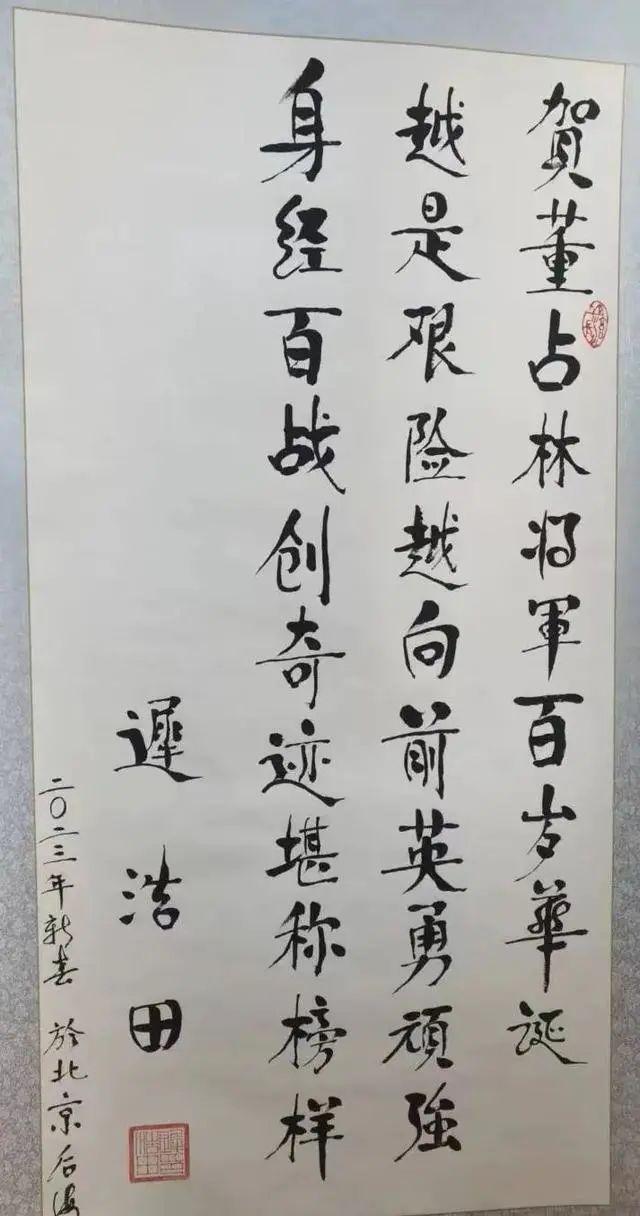 賀董占林将軍百岁華诞
越是艰险越向前英勇頑強
身经百战创奇迹堪称榜样
遲浩田
二〇二三年新春 於北京后海